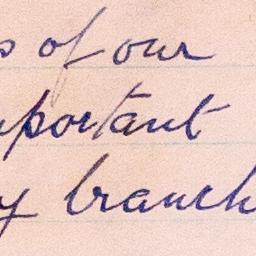 s of our
mportant
y branch